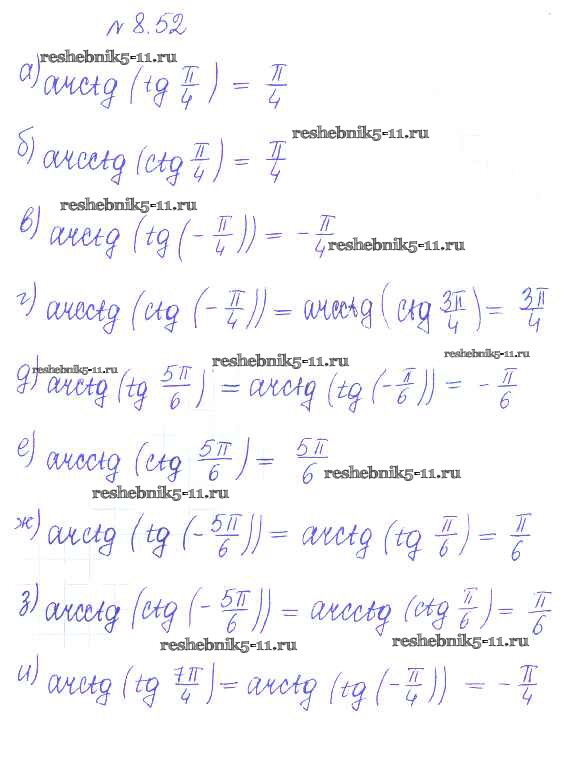 № 8.52
reshebnik5-11.ru
а) arctg (tg π/4) = π/4
reshebnik5-11.ru
б) arcctg (ctg π/4) = π/4
reshebnik5-11.ru
в) arctg (tg (-π/4)) = -π/4
reshebnik5-11.ru
г) arcctg (ctg (-π/4)) = arcctg (ctg 3π/4) = 3π/4
reshebnik5-11.ru
reshebnik5-11.ru
reshebnik5-11.ru
д) arctg (tg 5π/6) = arctg (tg (-π/6)) = -π/6
е) arcctg (ctg 5π/6) = 5π/6
reshebnik5-11.ru
reshebnik5-11.ru
ж) arctg (tg (-5π/6)) = arctg (tg π/6) = π/6
з) arcctg (ctg (-5π/6)) = arcctg (ctg π/6) = π/6
reshebnik5-11.ru
reshebnik5-11.ru
и) arctg (tg 7π/4) = arctg (tg (-π/4)) = -π/4